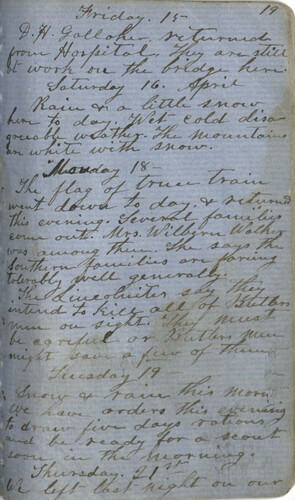 19
Friday. 15
D. H. Gallaher, returned
from Hospital. They are still
at work on the bridge here.
Saturday 16. April
Rain & a little snow
here to day. Wet cold disa-
greable weather. The mountains
are white with snow.
Monday 18
The flag of truce train
went down to day. & returned
this evening. Several families
come out. Mrs. Walker
was among them. She says the
southern families are faring
tolerably well generally.
The Lincolnites say they
intend to kill all of Butlers
men on sight. They must
be careful or Butlers men
might save a few of them
Tuesday 19
Snow & rain this morn
we have orders this evening
to draw five days rations
and be ready for a scout
soon in the morning.
Thursday. 21st
We left last night on our